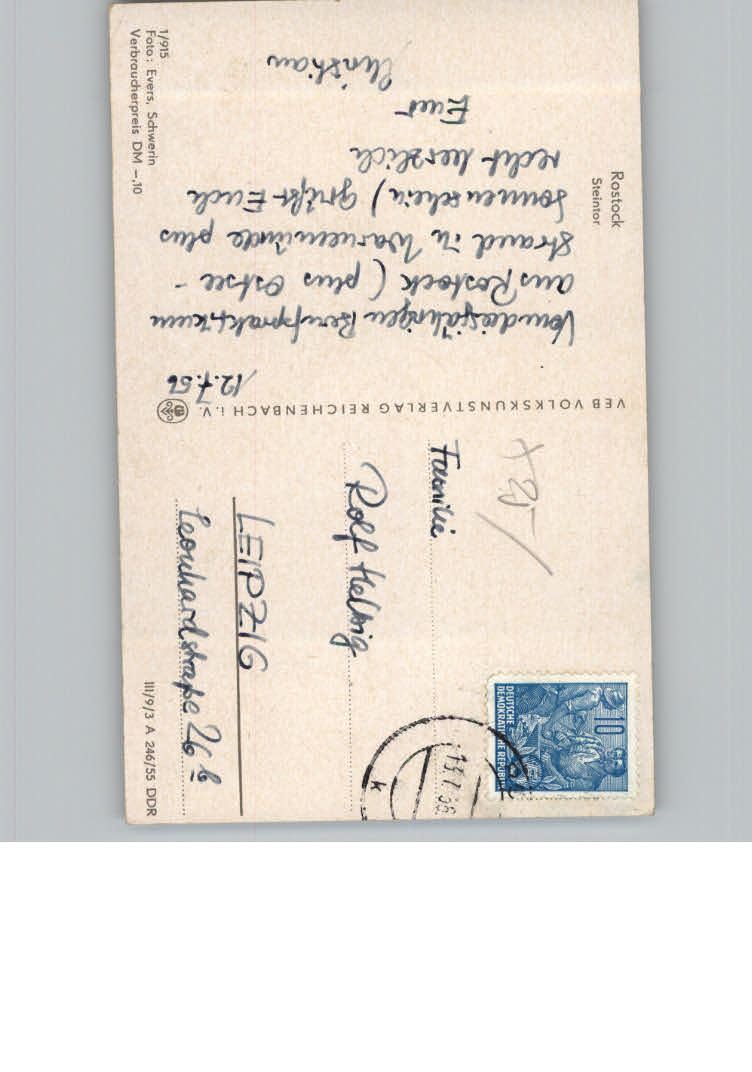 Rostock
Steintor
12.7.56
Vom diesjährigen Berufspraktikum
aus Rostock (plus Ostsee-
strand in Warnemünde plus
Sonnenschein) grüßt Euch
recht herzlich
Euer
Christian
1/915
Foto: Evers, Schwerin
Verbraucherpreis DM –,10
VEB VOLKSKUNSTVERLAG REICHENBACH i. V.
Familie
Rolf Helbig
LEIPZIG
Leonhardstraße 26 b
III/9/3 A 246/55 DDR
10
DEUTSCHE
DEMOKRATISCHE REPUBLIK
13.7.56
k